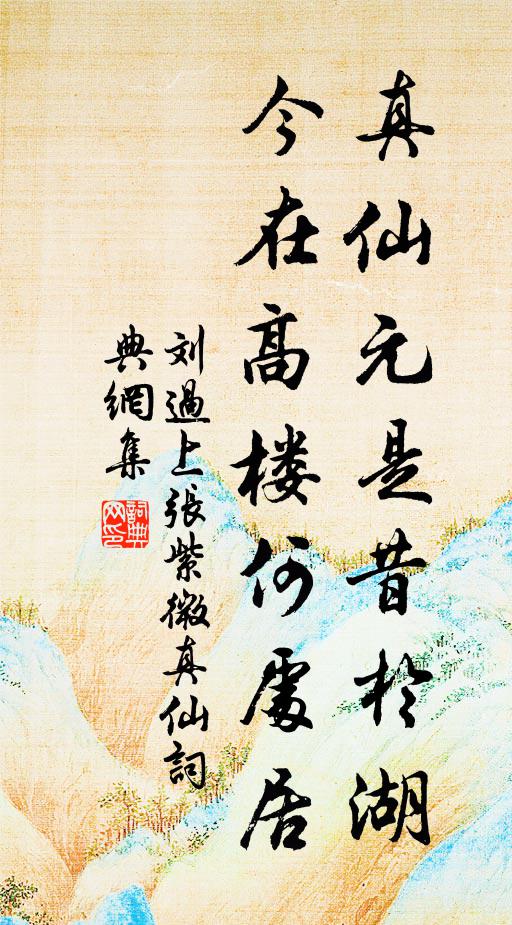 真仙元是昔於湖
今在高楼何處居
刘過上張紫微真仙詞
典網集
詞典
网印